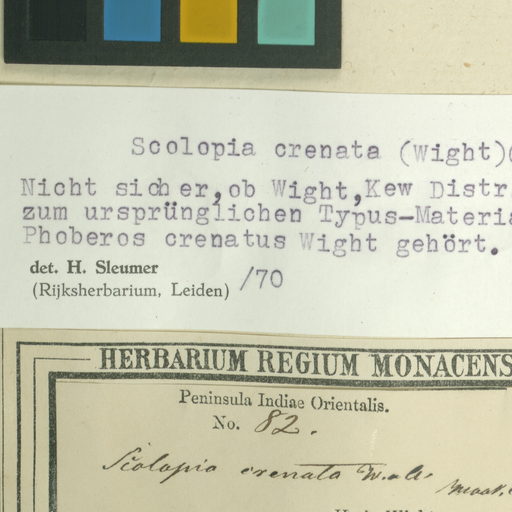 Scolopia crenata (Wight)
Nicht sicher, ob Wight, Kew Distr
zum ursprünglichen Typus-Materia
Phoberos crenatus Wight gehört.
det. H. Sleumer
(Rijksherbarium, Leiden) /70
HERBARIUM REGIUM MONACENS
Peninsula Indiae Orientalis.
No. 82.
Scolopia crenata